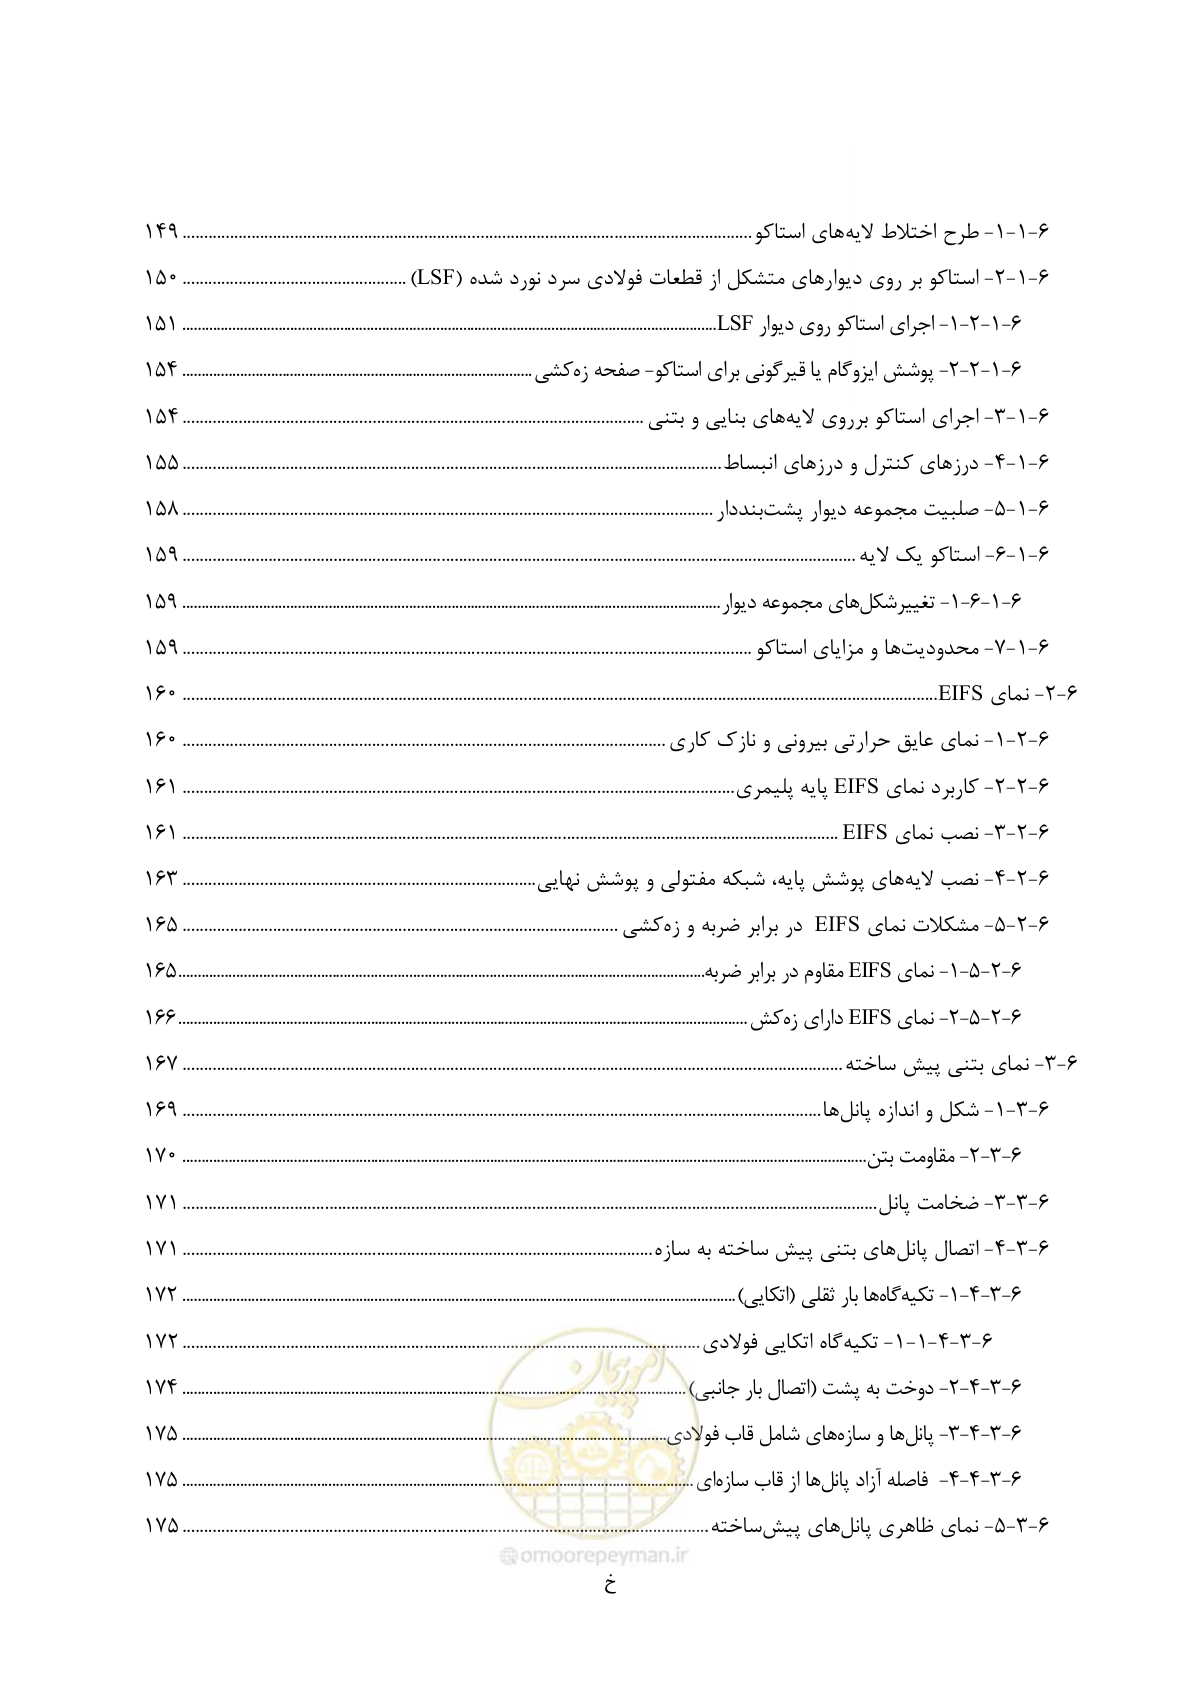 ۶-۱-۱- طرح اختلاط لایه‌های استاکو ........ ۱۴۹
۶-۱-۲- استاکو بر روی دیوارهای متشکل از قطعات فولادی سرد نورد شده (LSF) ........ ۱۵۰
۶-۱-۲-۱- اجرای استاکو روی دیوار LSF ........ ۱۵۱
۶-۱-۲-۲- پوشش ایزوگام یا قیرگونی برای استاکو- صفحه زه‌کشی ........ ۱۵۴
۶-۱-۳- اجرای استاکو برروی لایه‌های بنایی و بتنی ........ ۱۵۴
۶-۱-۴- درزهای کنترل و درزهای انبساط ........ ۱۵۵
۶-۱-۵- صلبیت مجموعه دیوار پشت‌بنددار ........ ۱۵۸
۶-۱-۶- استاکو یک لایه ........ ۱۵۹
۶-۱-۶-۱- تغییرشکل‌های مجموعه دیوار ........ ۱۵۹
۶-۱-۷- محدودیت‌ها و مزایای استاکو ........ ۱۵۹
۶-۲- نمای EIFS ........ ۱۶۰
۶-۲-۱- نمای عایق حرارتی بیرونی و نازک کاری ........ ۱۶۰
۶-۲-۲- کاربرد نمای EIFS پایه پلیمری ........ ۱۶۱
۶-۲-۳- نصب نمای EIFS ........ ۱۶۱
۶-۲-۴- نصب لایه‌های پوشش پایه، شبکه مفتولی و پوشش نهایی ........ ۱۶۳
۶-۲-۵- مشکلات نمای EIFS در برابر ضربه و زه‌کشی ........ ۱۶۵
۶-۲-۵-۱- نمای EIFS مقاوم در برابر ضربه ........ ۱۶۵
۶-۲-۵-۲- نمای EIFS دارای زه‌کش ........ ۱۶۶
۶-۳- نمای بتنی پیش ساخته ........ ۱۶۷
۶-۳-۱- شکل و اندازه پانل‌ها ........ ۱۶۹
۶-۳-۲- مقاومت بتن ........ ۱۷۰
۶-۳-۳- ضخامت پانل ........ ۱۷۱
۶-۳-۴- اتصال پانل‌های بتنی پیش ساخته به سازه ........ ۱۷۱
۶-۳-۴-۱- تکیه‌گاه‌ها بار ثقلی (اتکایی) ........ ۱۷۲
۶-۳-۴-۱-۱- تکیه‌گاه اتکایی فولادی ........ ۱۷۲
۶-۳-۴-۲- دوخت به پشت (اتصال بار جانبی) ........ ۱۷۴
۶-۳-۴-۳- پانل‌ها و سازه‌های شامل قاب فولادی ........ ۱۷۵
۶-۳-۴-۴- فاصله آزاد پانل‌ها از قاب سازه‌ای ........ ۱۷۵
۶-۳-۵- نمای ظاهری پانل‌های پیش‌ساخته ........ ۱۷۵
امور پیمان
@omoorepeyman.ir
خ